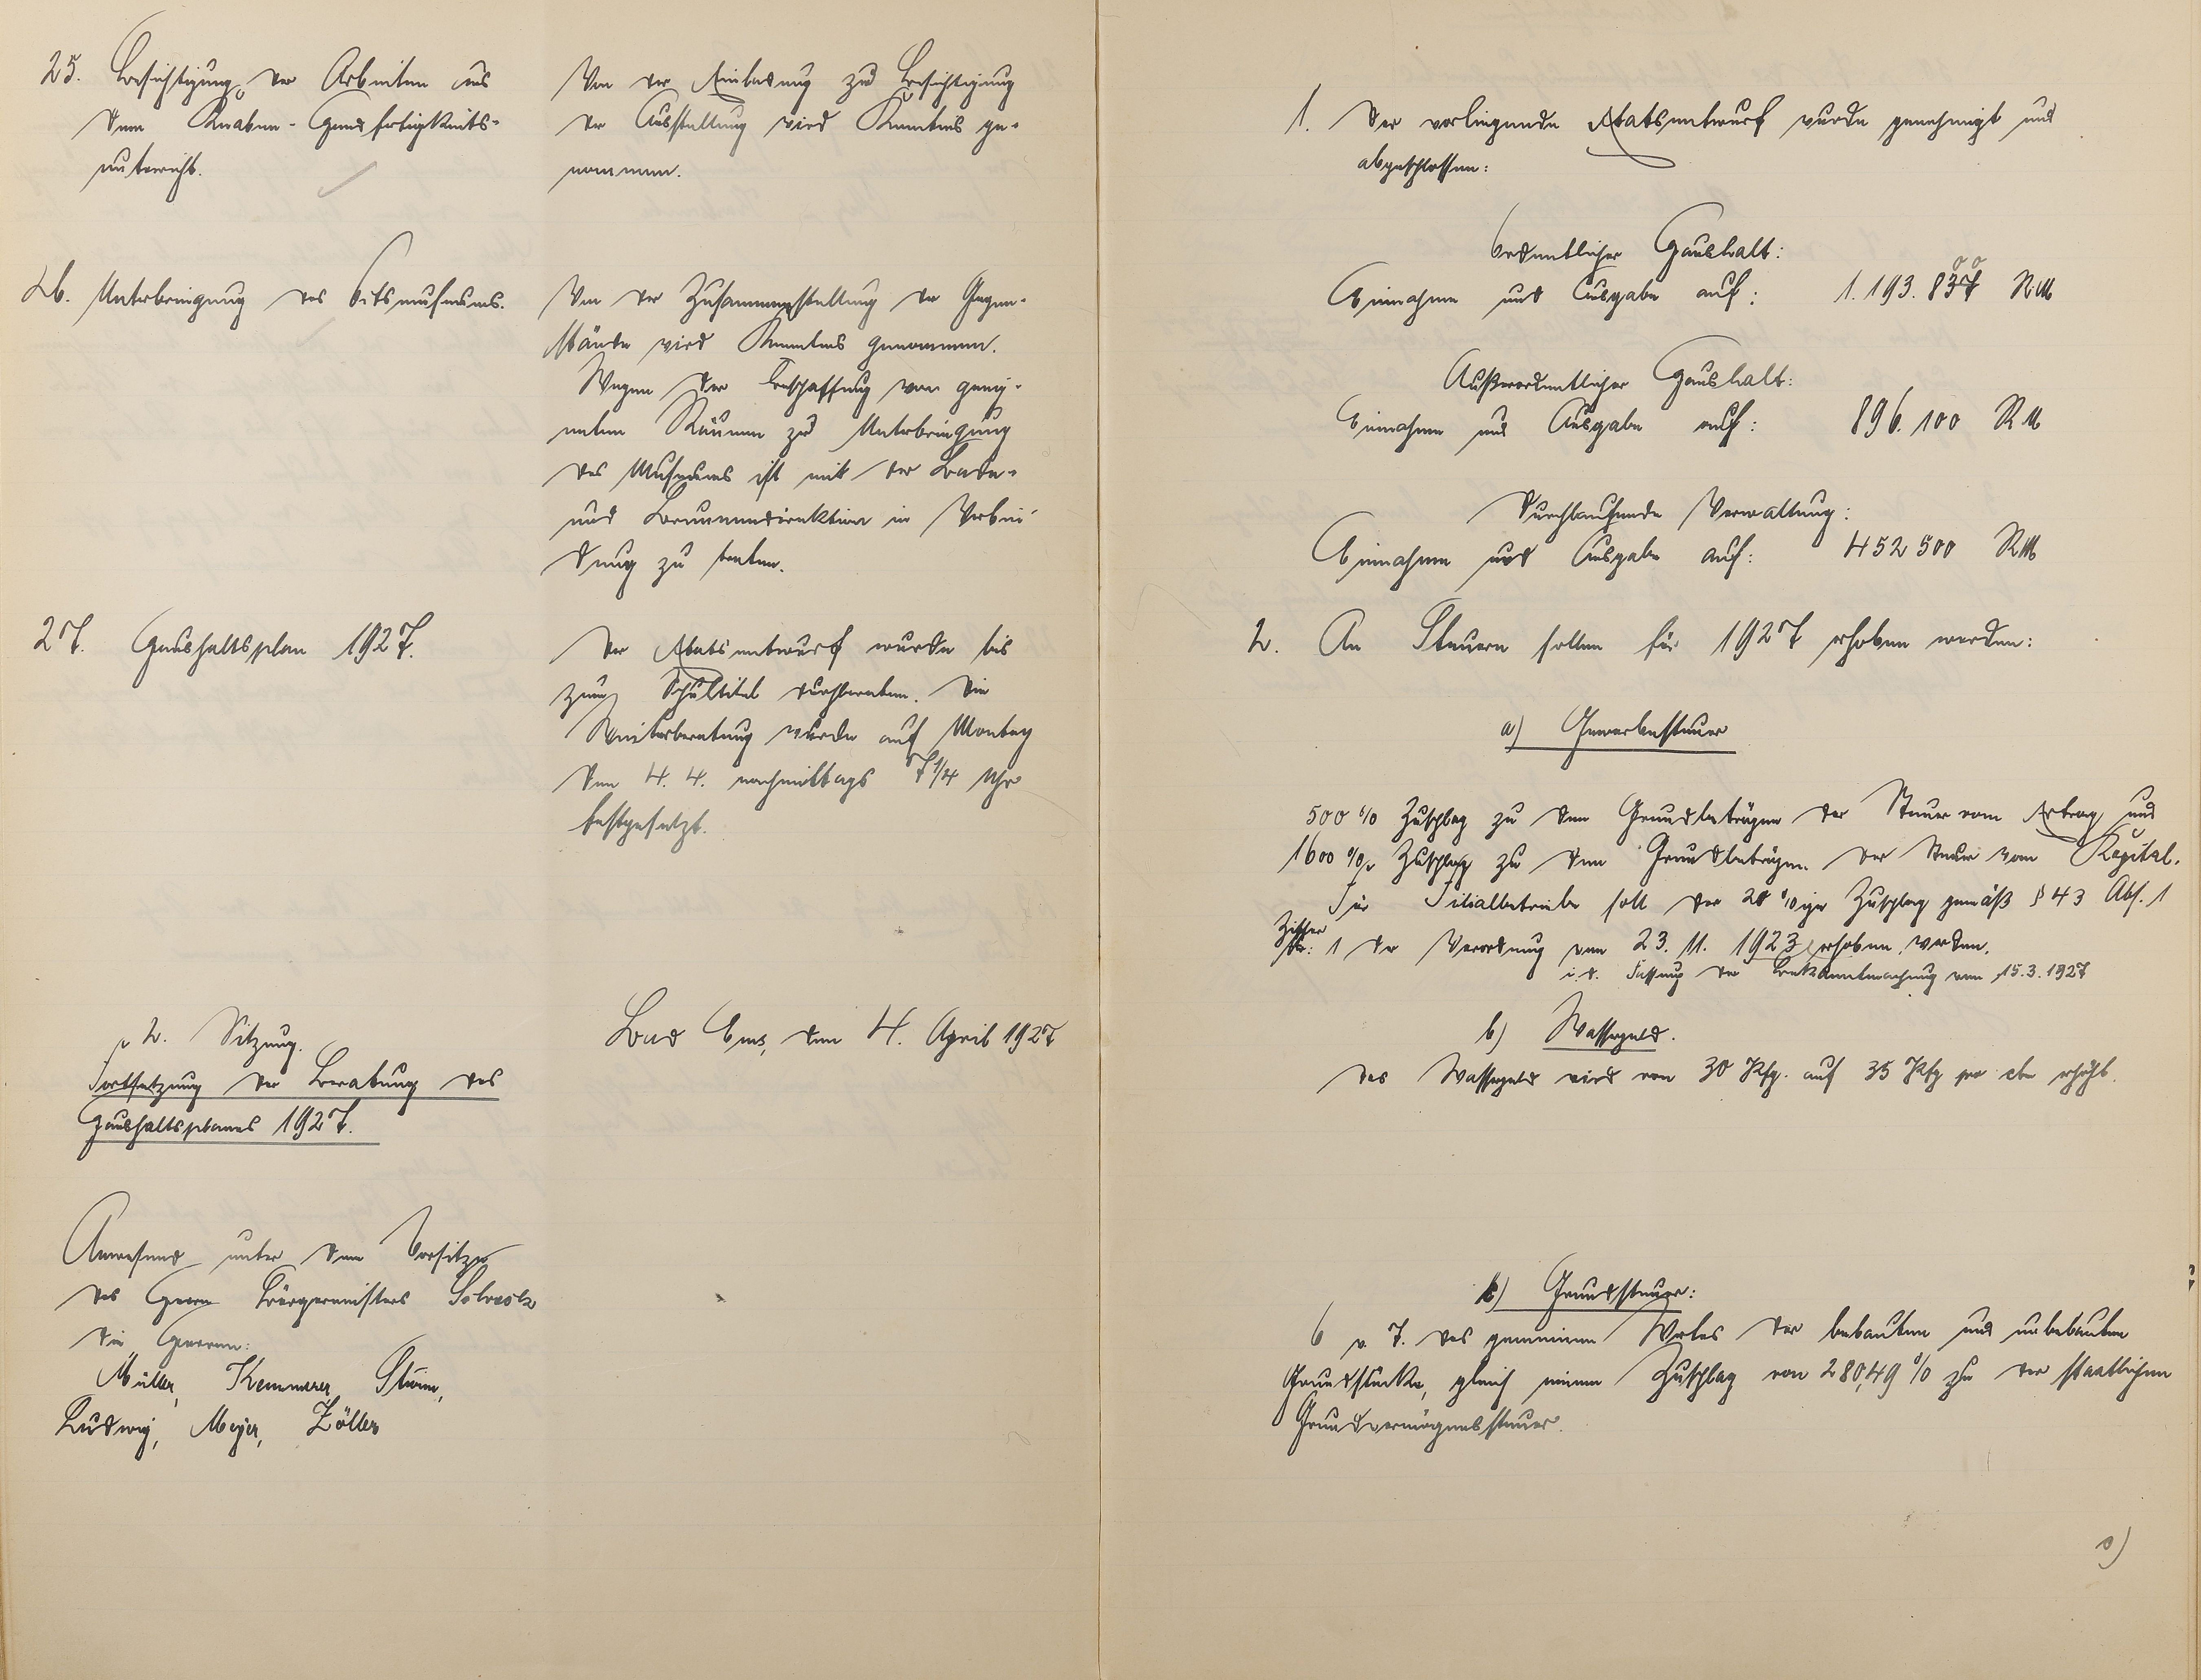 25. Besichtigung der Arbeiten aus
dem Knaben-Handfertigkeits-
unterricht.
Von der Einladung zur Besichtigung
der Ausstellung wird Kenntnis ge-
nommen.
26. Unterbringung des Ortsmuseums.
Von der Zusammenstellung der Gegen-
stände wird Kenntnis genommen.
Wegen der Beschaffung von geeig-
neten Räumen zur Unterbringung
des Museums ist mit der Bade-
und Brunnendirektion in Verbin-
dung zu treten.
27. Haushaltsplan 1927.
Der Etatsentwurf wurde bis
zum Schultitel durchberaten. Die
Weiterberatung wurde auf Montag
den 4. 4. nachmittags 7 1/4 Uhr
festgesetzt.
2. Sitzung.
Fortsetzung der Beratung des
Haushaltsplanes 1927.
Bad Ems, den 4. April 1927
Anwesend unter dem Vorsitze
des Herrn Bürgermeisters
die Herren:
Müller, Kemmerer, Sturm,
Ludwig, Meyer, Zöller
1. Der vorliegende Etatsentwurf wurde genehmigt und
abgeschlossen:
Ordentlicher Haushalt:
Einnahme und Ausgabe auf: 1.193.837 RM
00
Außerordentlicher Haushalt:
Einnahme und Ausgabe auf: 896.100 RM
Durchlaufende Verwaltung:
Einnahme und Ausgabe auf: 452 500 RM
2. An Steuern sollen für 1927 erhoben werden:
a) Gewerbesteuer
500 % Zuschlag zu den Grundbeträgen der Steuer vom Ertrag und
1600 % Zuschlag zu den Grundbeträgen der Steuer vom Kapital.
Für Filialbetriebe soll der 20 %ige Zuschlag gemäß § 43 Abs. 1
Ziffer 1 der Verordnung vom 23. 11. 1923 erhoben werden.
i. d. Fassung der Bekanntmachung vom 15.3.1927
b) Wassergeld.
Das Wassergeld wird von 30 Pfg. auf 35 Pfg pro cbm erhöht.
c) Grundsteuer:
6 v. T. des gemeinen Wertes der bebauten und unbebauten
Grundstücke, gleich einem Zuschlag von 280,49 % zu der staatlichen
Grundvermögenssteuer.